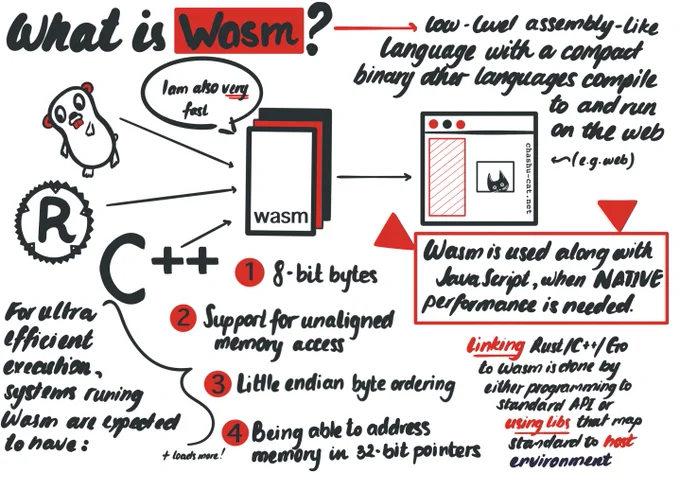 What is Wasm?
low-level assembly-like
language with a compact
binary other languages compile
to and run
on the web
(e.g. web)
I am also very
fast
wasm
chashu-cat.net
R
C++
Wasm is used along with
JavaScript, when NATIVE
performance is needed.
For ultra
efficient
execution,
systems runing
Wasm are expected
to have:
1 8-bit bytes
2 Support for unaligned
memory access
3 Little endian byte ordering
4 Being able to address
memory in 32-bit pointers
+ loads more!
linking Rust/C++/Go
to Wasm is done by
either programming to
standard API or
using libs that map
standard to host
environment